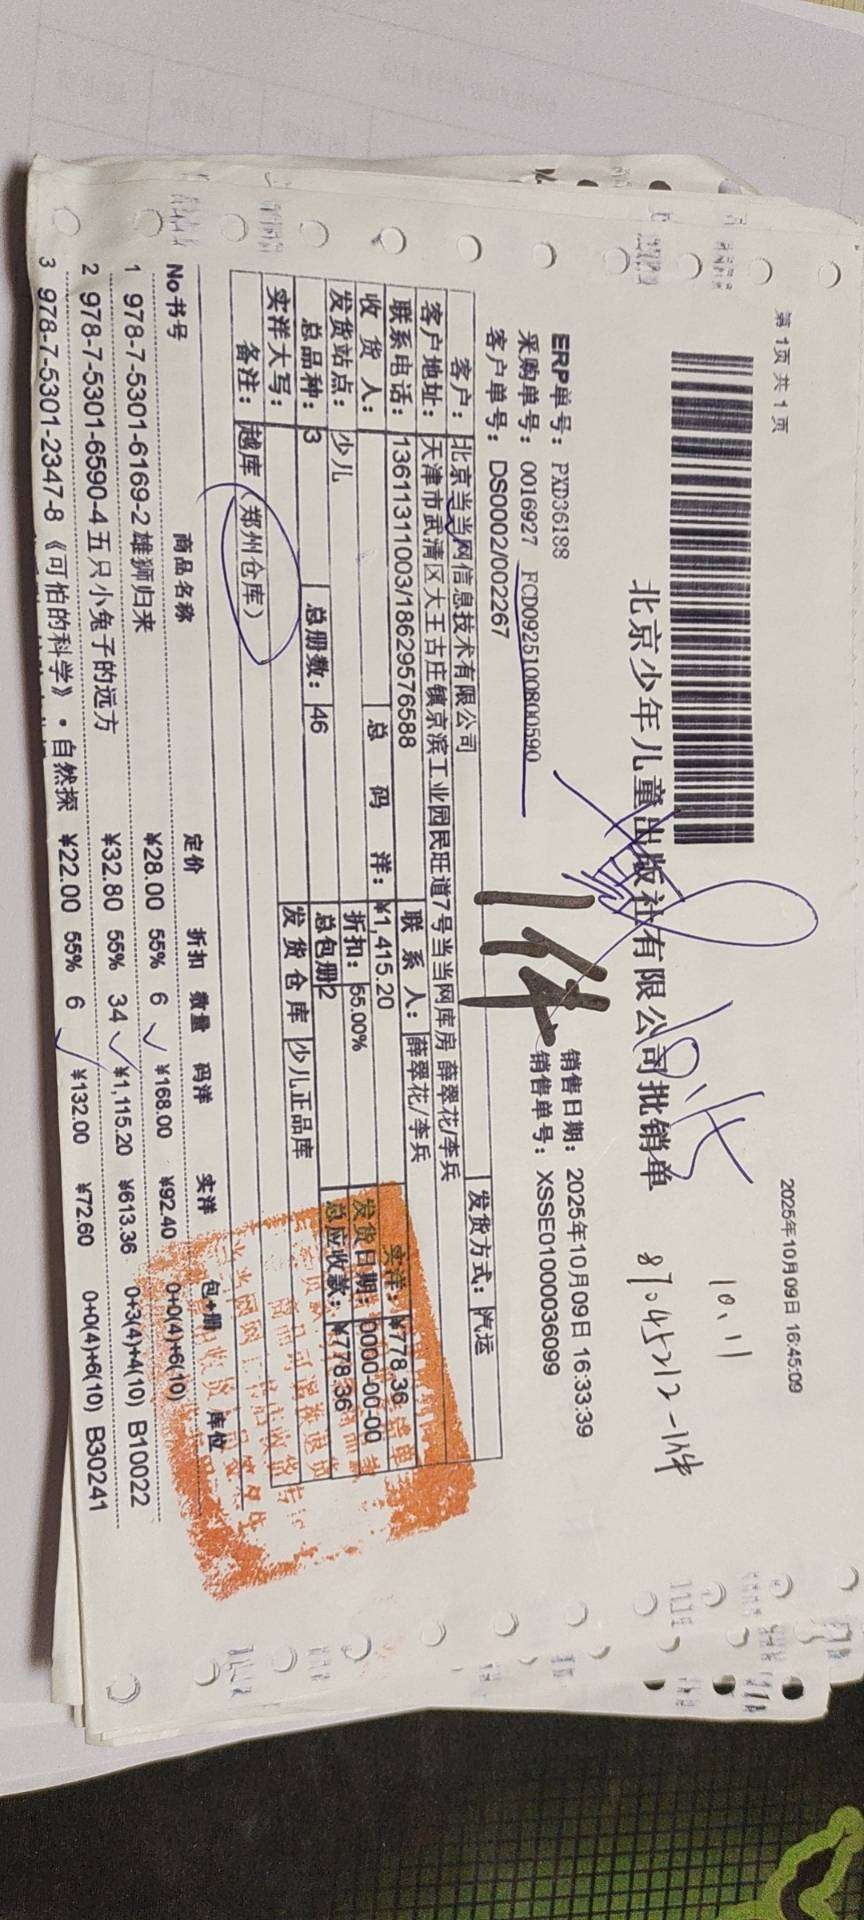 第 1页 共 1 页
2025年10月09日 16:45:09
10.11
北京少年儿童出版社有限公司批销单
87045212-1件
ERP单号: PXD36188
销售日期: 2025年10月09日 16:33:39
采购单号: 0016927 FCD0925100800590
1件
销售单号: XSSE01000036099
客户单号: DS0002/002267
客户: 北京当当网信息技术有限公司
发货方式: 汽运
客户地址: 天津市武清区大王古庄镇京滨工业园民旺道7号当当网库房 薛翠花/李兵
联系电话: 13611311003/18629576588
联 系 人: 薛翠花/李兵
收 货 人:
总 码 洋: ¥1,415.20
实洋: ¥778.36
发货站点: 少儿
折扣: 55.00%
发货日期: 0000-00-00
总品种: 3
总册数: 46
总包册 2
总应收款: ¥778.36
实洋大写:
发货仓库 少儿正品库
备注: 越库（郑州仓库）
No 书号 商品名称 定价 折扣 数量 码洋 实洋 包+册 库位
1 978-7-5301-6169-2 雄狮归来 ¥28.00 55% 6 ¥168.00 ¥92.40 0+0(4)+6(10)
2 978-7-5301-6590-4 五只小兔子的远方 ¥32.80 55% 34 ¥1,115.20 ¥613.36 0+3(4)+4(10) B10022
3 978-7-5301-2347-8 《可怕的科学》·自然探 ¥22.00 55% 6 ¥132.00 ¥72.60 0+0(4)+6(10) B30241